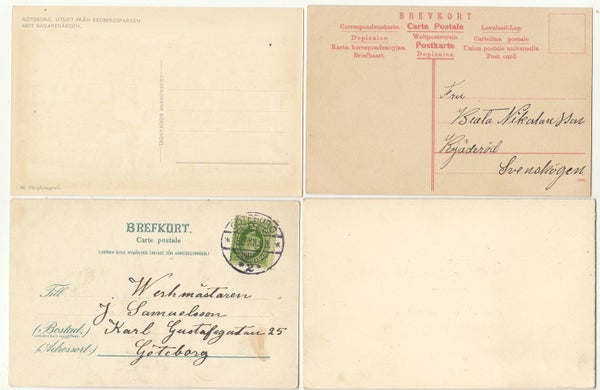 GÖTEBORG. UTSIKT FRÅN REDBERGSPARKEN
MOT BAGAREGÅRDEN.
BREVKORT
Correspondenzkarte Carte Postale Levelezö-Lap
Dopisnica Weltpostverein Cartolina postale
Karta korrespondencyjna Postkarte Union postale universelle
Briefkaart Dopisnice Post card
Fru
Beata Nikolausson
Svenskögen
BREFKORT.
Carte postale
(DENNA SIDA ANVÄNDES ENDAST FÖR ADRESSERINGEN.)
GÖTEBORG
2
Till
Werkmästaren
J. Samuelsson
(Bostad.) Karl Gustafsgatan 25
(Adressort.) Göteborg